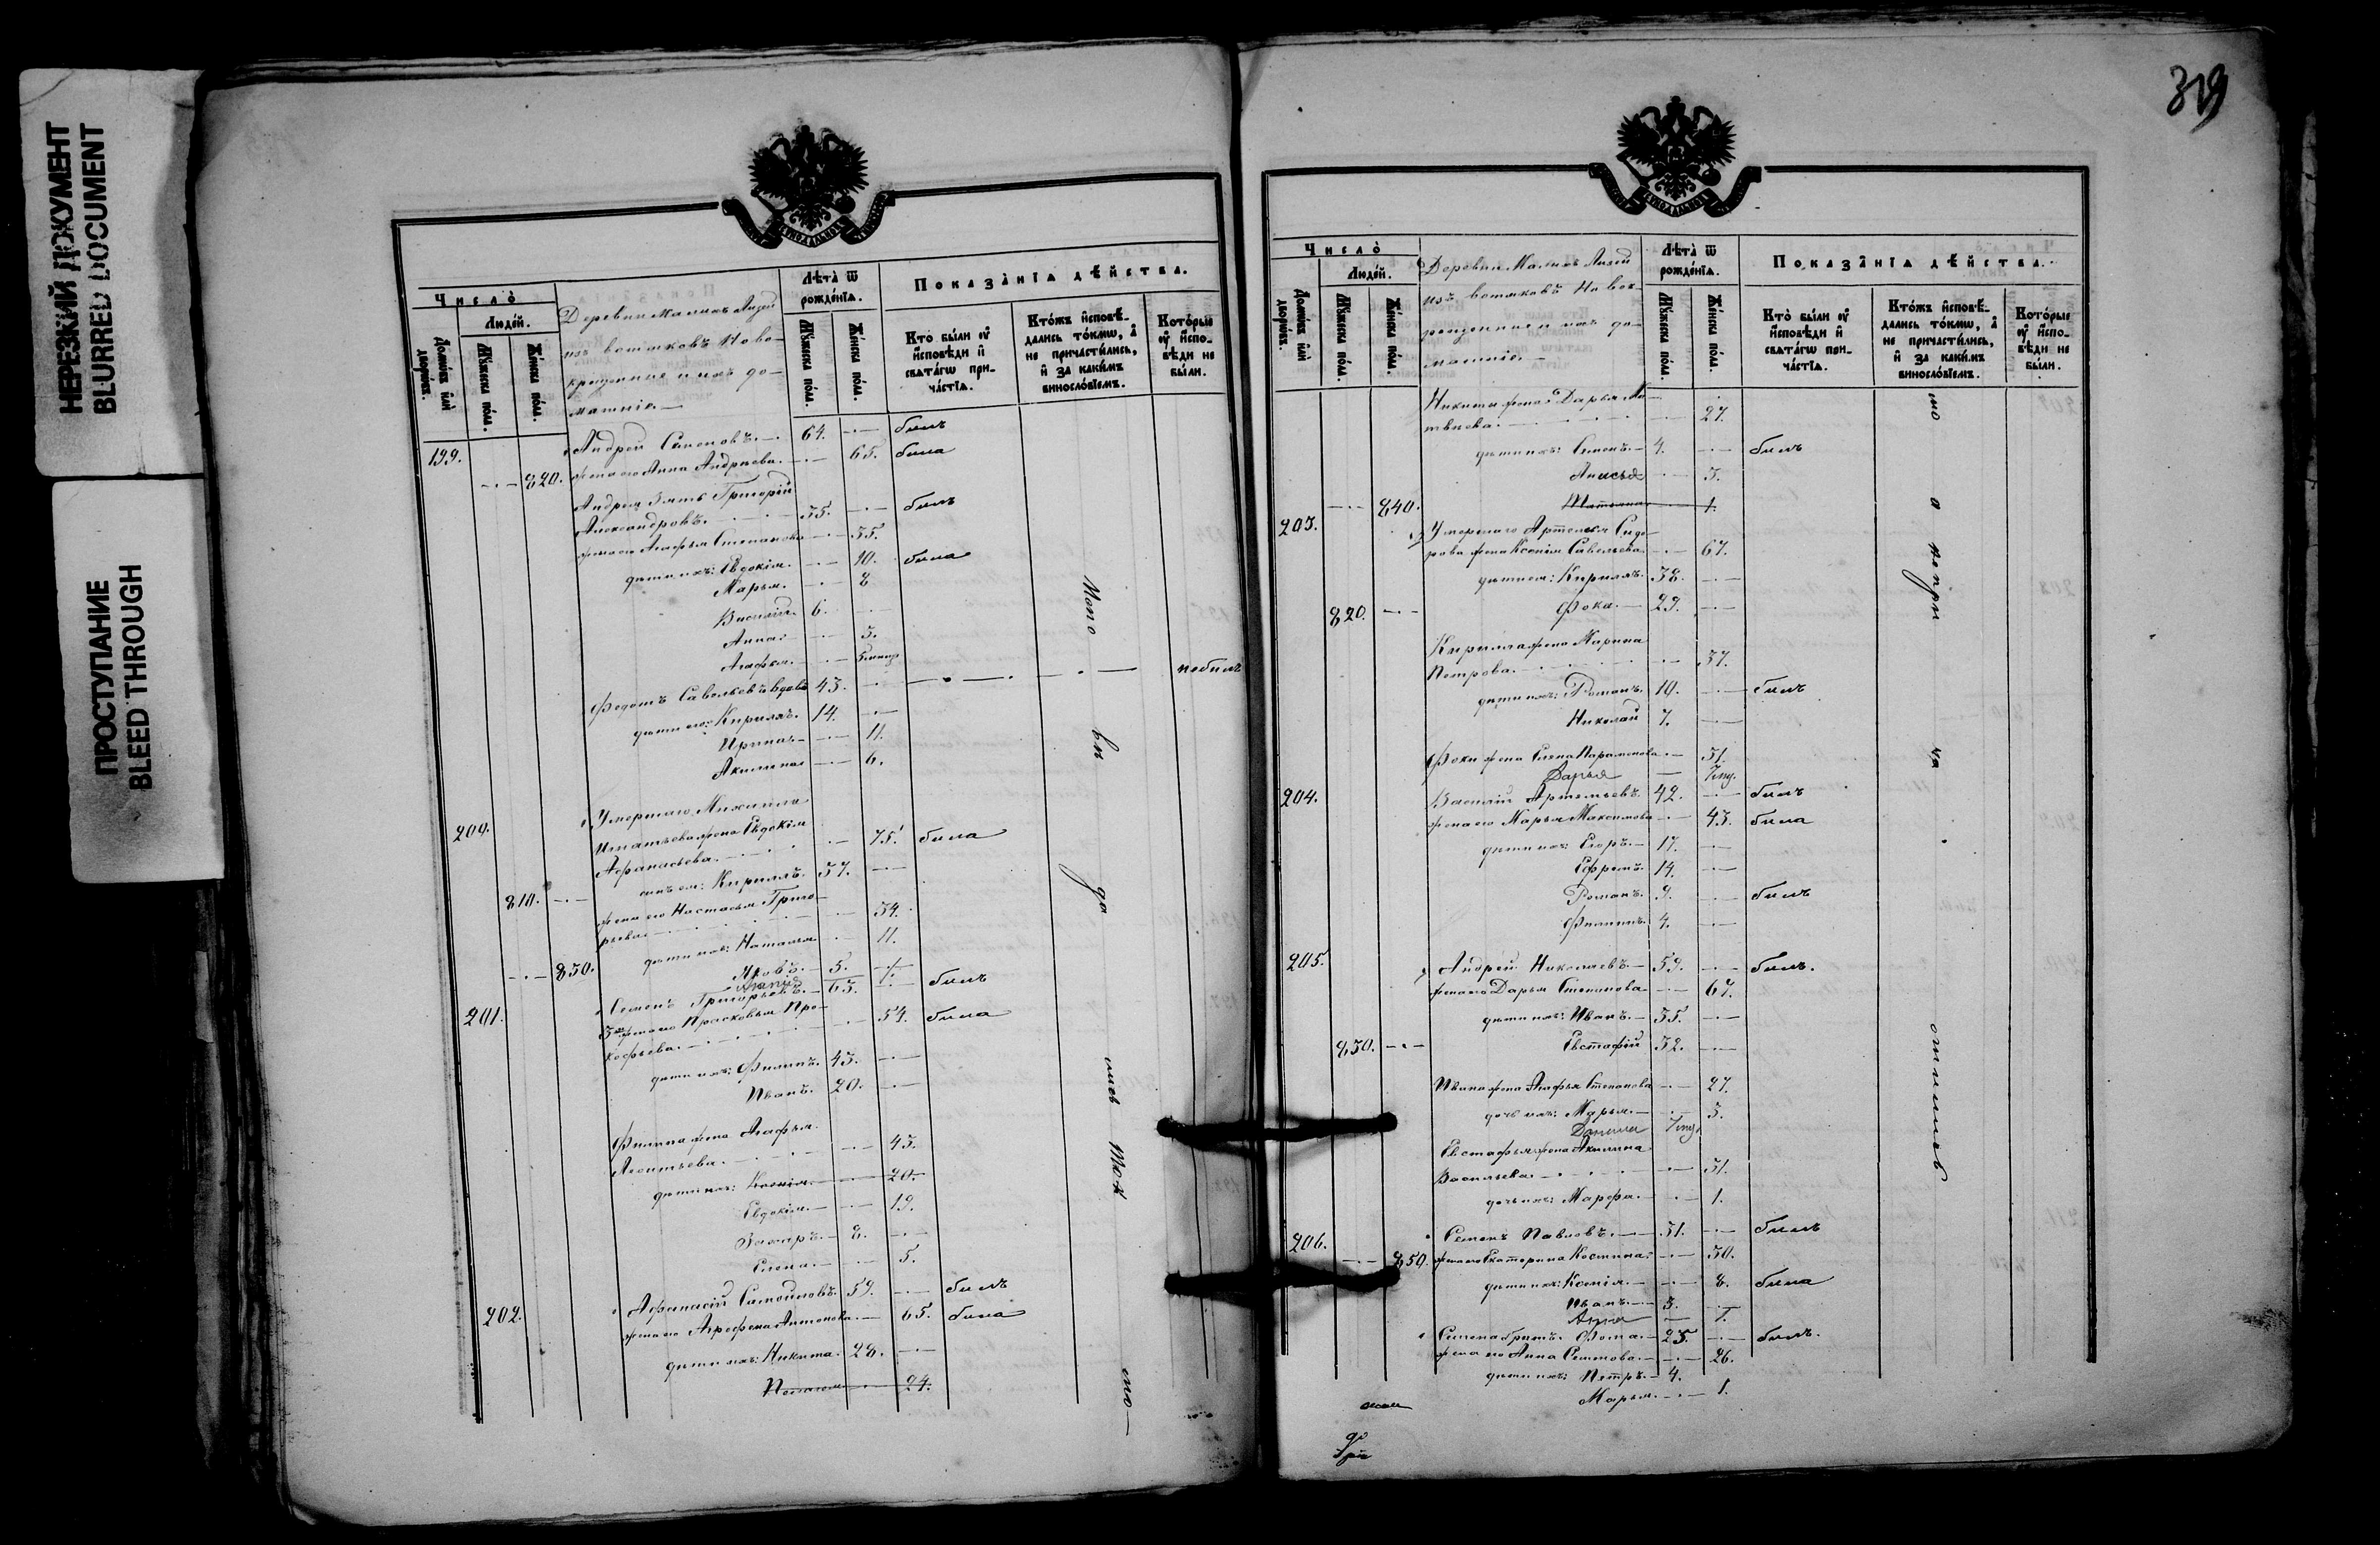 НЕРЕЗКИЙ ДОКУМЕНТ
BLURRED DOCUMENT
ПРОСТУПАНИЕ
BLEED THROUGH
Число̀
Люде́й.
Домѡ́въ и҆лѝ дворѡ́въ.
Мꙋ́жеска по́лꙋ.
Же́нска по́лꙋ.
Деревни Малихъ Лизей
изъ вотяковъ Ново-
крещенные и ихъ до-
машніе.—
Лѣта̀ ѿ рожде́нїѧ.
Мꙋ́жеска по́лꙋ.
Же́нска по́лꙋ.
Показа̑нїѧ дѣ́йства.
Кто̀ бы́ли ᲂу҆ и҆сповѣ́ди и҆ свѧта́гѡ прича́стїѧ.
Кто́жъ и҆сповѣ́дались то́кмѡ, а҆ не причасти́лись, и҆ за каки́мъ винослѡ́вїемъ.
Кото́рые ᲂу҆ и҆сповѣ́ди не бы́ли.
199. Андрей Семеновъ.— 64. былъ
820. жена его Анна Андреева.— 65. была
Андрея Зять Григорій
Александровъ. 35. былъ
жена его Агафья Степанова 35.
дѣти ихъ: Евдокія.— 10. была
Марья. 8
Василій. 6.
Анна. 3.
Агафья.
Федотъ Савельевъ вдовъ 43. небылъ
дѣти его: Кириллъ. 14.
Ирина.— 11.
Акилина 6.
200. Умершаго Михаила
Игнатьева жена Евдокія
Афанасьева. 75. была
810. сынъ ея: Кириллъ. 37.
жена его Настасья Григо-
рьева 34.
дѣти ихъ: Наталья 11.
830. Яковъ.— 5.
1.
201. Семенъ Григорьевъ.— 63. былъ
жена его Прасковья Про-
кофьева. 54. была
дѣти ихъ: Филипъ. 43.
Иванъ. 20.
Филипа жена Агафья
Леонтьева. 43.
дѣти ихъ: Ксенія.— 20.
Евдокія.— 19.
Захаръ.— 8.
Елена.— 5.
202. Афанасій Самойловъ. 59. былъ
жена его Агрофена Антонова.— 65. была
дѣти ихъ: Никита. 28.
24.
319
Число̀
Люде́й.
Домѡ́въ и҆лѝ дворѡ́въ.
Мꙋ́жеска по́лꙋ.
Же́нска по́лꙋ.
Деревни Малихъ Лизей
изъ вотяковъ Новок-
рещенные и ихъ до-
машніе.—
Лѣта̀ ѿ рожде́нїѧ.
Мꙋ́жеска по́лꙋ.
Же́нска по́лꙋ.
Показа̑нїѧ дѣ́йства.
Кто̀ бы́ли ᲂу҆ и҆сповѣ́ди и҆ свѧта́гѡ прича́стїѧ.
Кто́жъ и҆сповѣ́дались то́кмѡ, а҆ не причасти́лись, и҆ за каки́мъ винослѡ́вїемъ.
Кото́рые ᲂу҆ и҆сповѣ́ди не бы́ли.
Никиты жена Дарья Ма-
твѣева. 27.
дѣти ихъ: Семенъ.— 4. былъ
Анисья 3.
840. Татьяна 1.
203. Умершаго Артемья Сидо-
рова жена Ксенія Савельева 67.
дѣти ея: Кириллъ. 38.
820. Фока.— 29.
Кирилла жена Марина
Петрова. 37.
дѣти ихъ: Романъ. 10. былъ
Николай 7.
Фоки жена Елена Парамонова.— 31.
Дарья
204. Василій Артемьевъ. 42. былъ
жена его Марья Максимова 43. была
дѣти ихъ: Егоръ.— 17.
Ефремъ. 14.
Романъ. 9. былъ
Филипъ. 4.
205. Андрей Николаевъ.— 59. былъ.
жена его Дарья Степанова 67.
дѣти ихъ: Иванъ.— 35.
830. Евстафій 32.
Ивана жена Агафья Степанова 27.
дочь ихъ: Марья.— 3.
Данила
Евстафья жена Акилина
Васильева.— 31.
дочь ихъ: Марфа.— 1.
206. Семенъ Павловъ.— 31. былъ
850. жена его Екатерина Костина. 30.
дѣти ихъ: Ксенія.— 8. была
Иванъ.— 3.
Анна 1.
Семена братъ Фома.— 25. былъ.
жена его Анна Семенова. 26.
дѣти ихъ: Петръ.— 4.
Марья. 1.